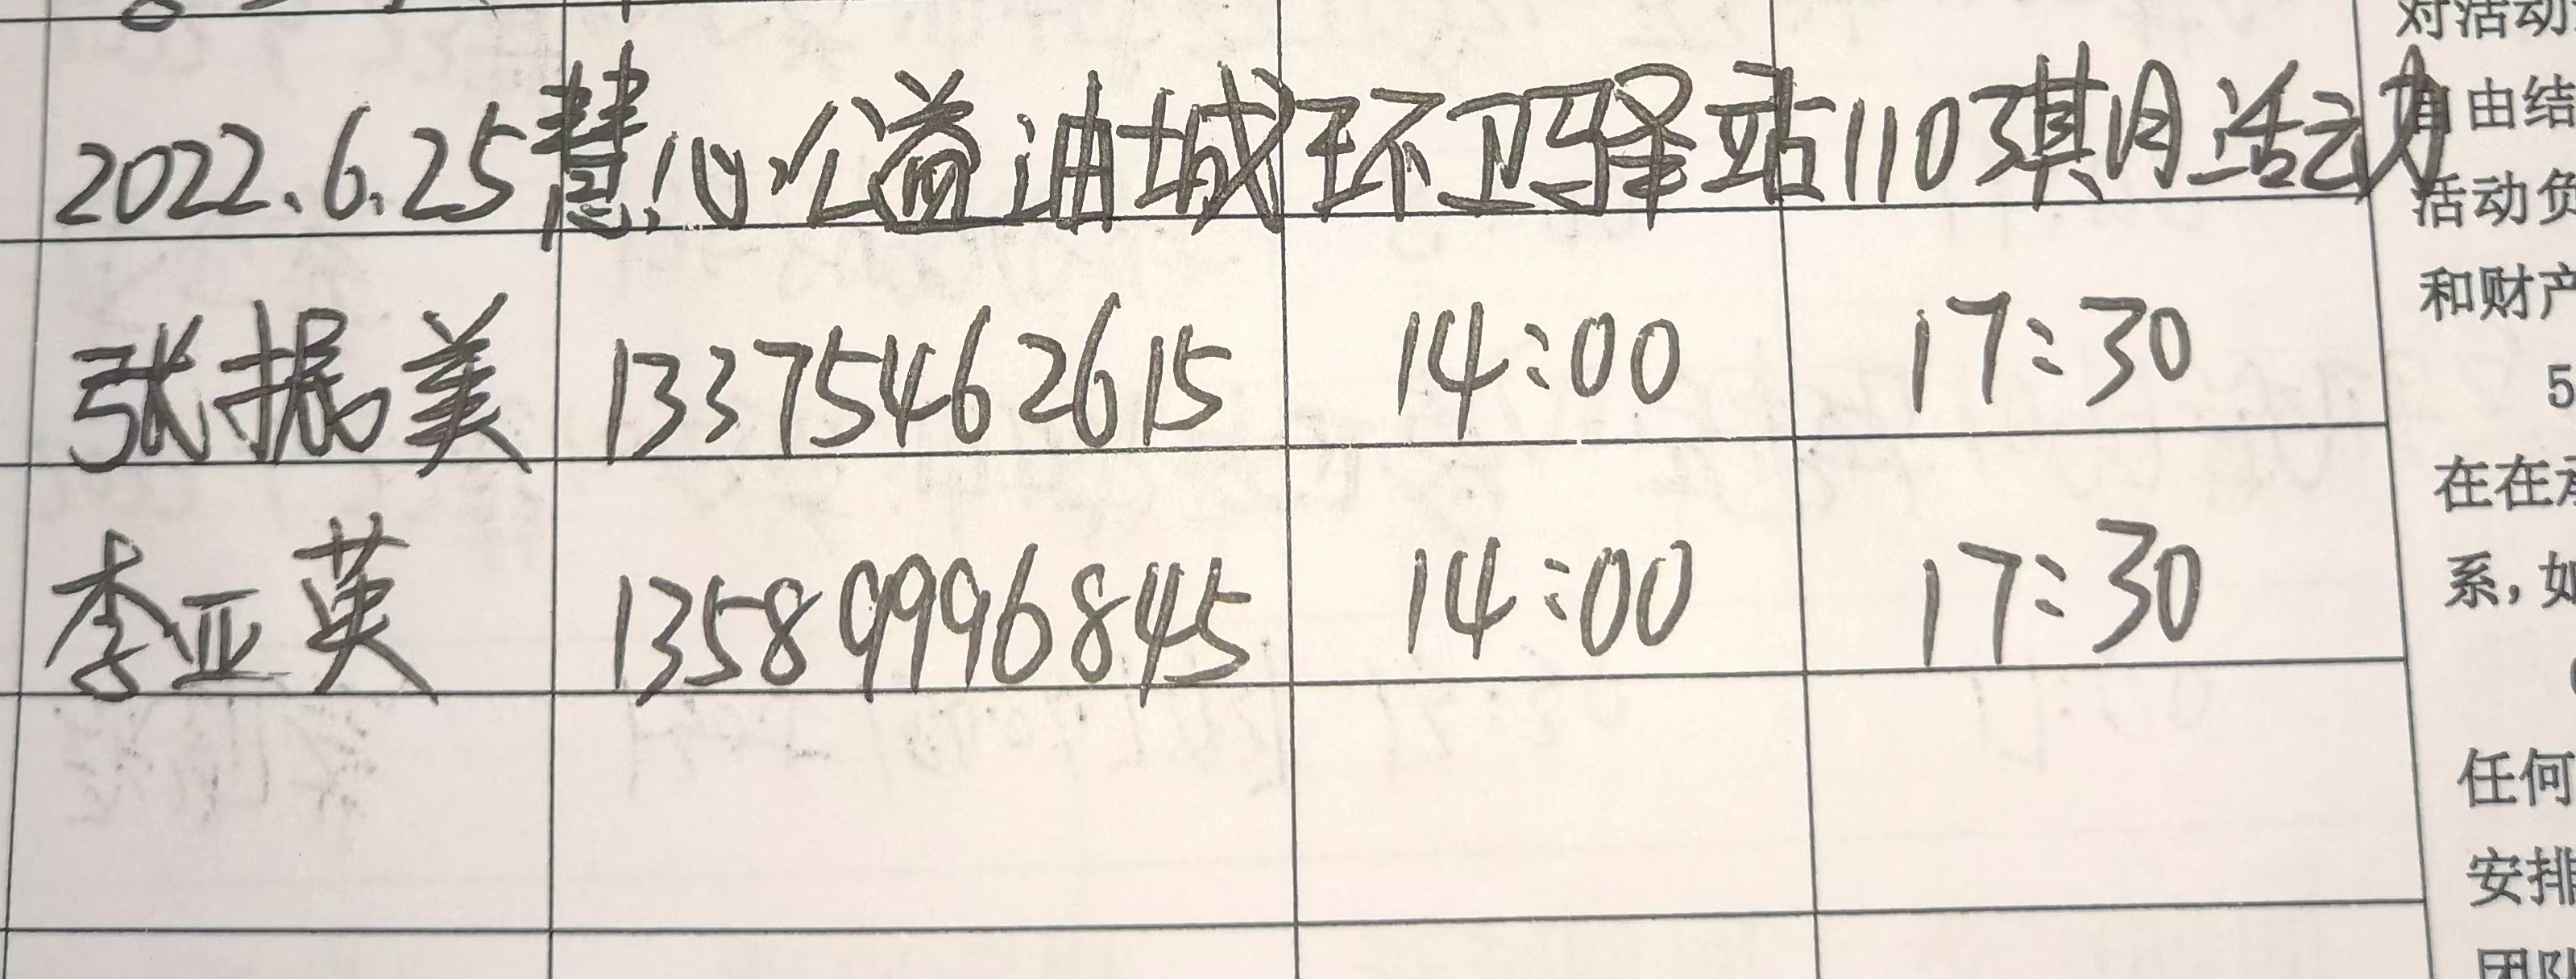 对活动
2022.6.25慧心公益油城环卫驿站1103期活动
自由结
活动负
张振美 13375462615 14:00 17:30
和财产
5
在在
李亚英 13589996845 14:00 17:30
系,如
任何
安排
团队